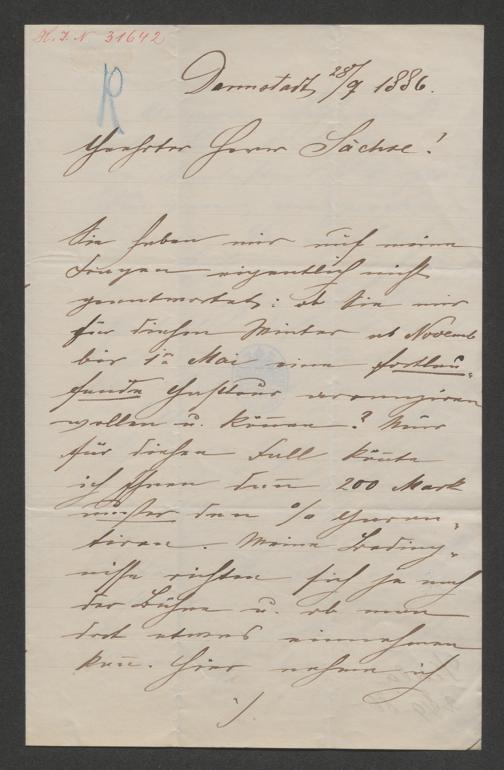 H. I. N 31642
R
Darmstadt, 28/9 1886.
Geehrter Herr Sachse!
Sie haben mir auf meine
Fragen eigentlich nicht
geantwortet: ob Sie mir
für diesen Winter ab Novemb
bis 1ten Mai eine fortlau-
fende Gasttour arrangiren
wollen u. können? Nur
für diesen Fall könnte
ich Ihnen dann 200 Mark
außer den % garan-
tiren. Meine Beding-
nisse richten sich ja nach
der Bühne u. ob man
dort etwas einnehmen
kann. Hier nehme ich